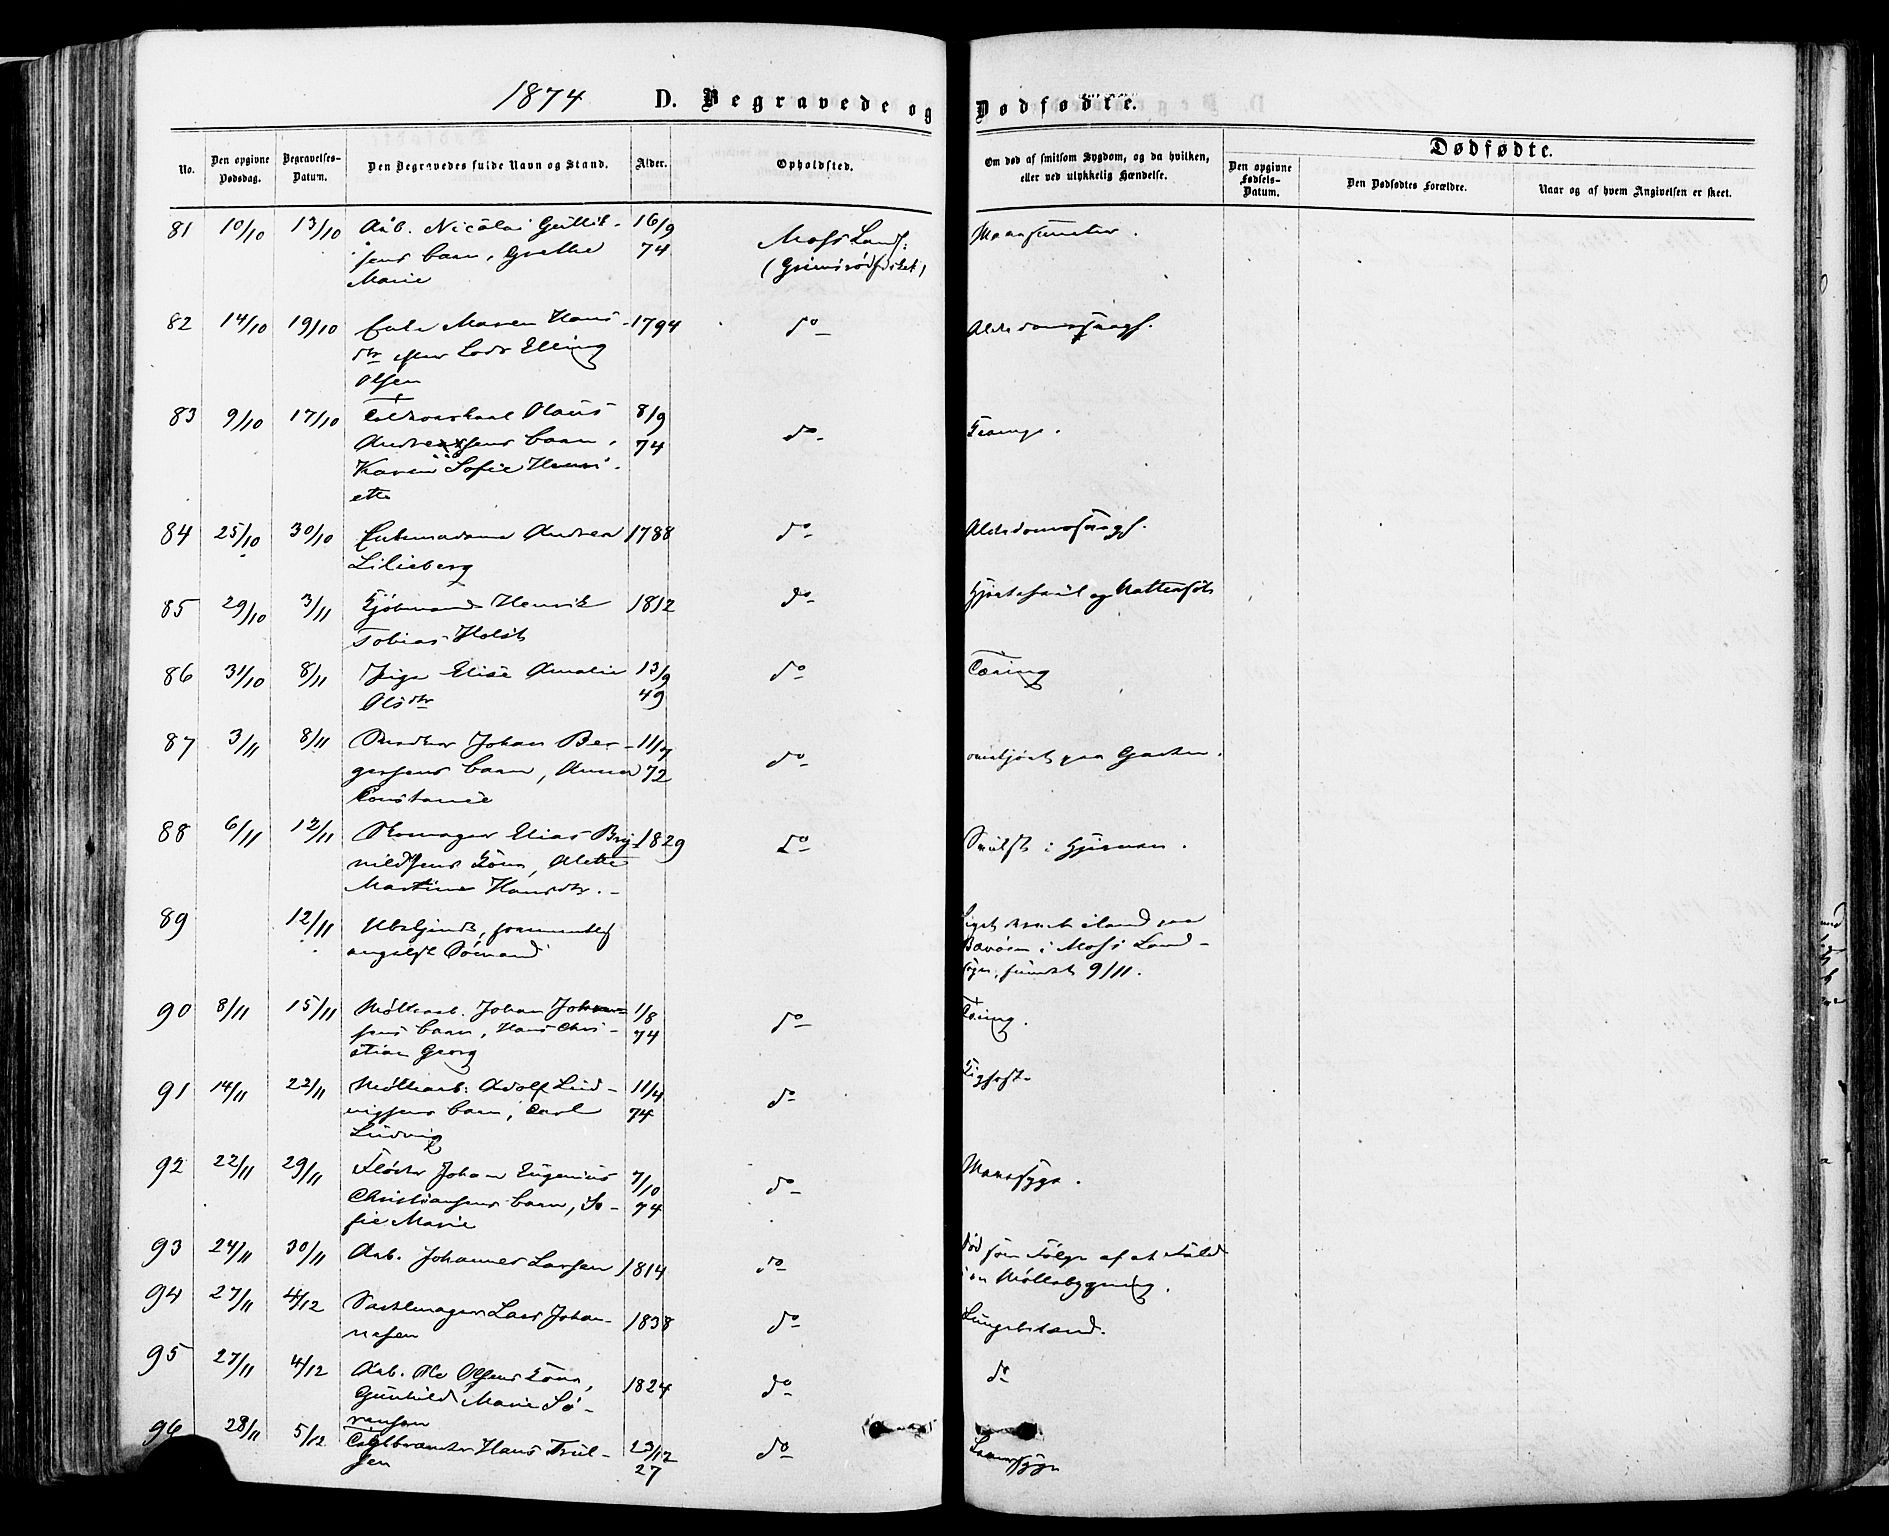 1874 D. Begravede og Dødfødte.
No. Den opgivne Dødsdag. Begravelses-Datum. Den Begravedes fulde Navn og Stand. Alder. Opholdsted. Om død af smitsom Sygdom, og da hvilken, eller ved ulykkelig Hændelse. Dødfødte.
Den opgivne Fødsels-Datum. Den Dødfødtes Forældre. Naar og af hvem Angivelsen er skeet.
81 10/10 13/10 Arb. Nicolai Gullik- 16/9 Moss Lands.
sens barn, Grethe 74 (Grimsrødfeltet)
Marie
82 14/10 19/10 Enke Maren Hans- 1794 do Alderdomssvagh.
dtr efter Lods Elling
Olsen
83 9/10 17/10 Olaus 8/9 do
Andreasens barn, 74
Karen Sofie Henri-
ette
84 25/10 30/10 Enkemadame Andrea 1788 do Alderdomssvagh.
Lilieberg
85 29/10 3/11 Kjøbmand Henrik 1812 do Hjertefeil og Vattersot
Tobias Holst
86 31/10 8/11 Pige Elise Amalie 13/9 do Tæring
Olsdtr 49
87 3/11 8/11 Snedker Johan Ber- 11/7 do overkjørt paa Gaden.
gersens barn, Anna 72
Constance
88 6/11 12/11 Skomager Elias Bryn- 1829 do i Hjernen.
nildsens Kone, Alette
Martine Hansdtr.
89 12/11 Ubekjendt, formentlig Liget drevet iland paa
engelsk Sømand i Moss Land-
sogn, fundet 9/11.
90 8/11 15/11 Møllearb. Johan Johan- 1/8 do Tæring.
sens barn, Hans Chri- 74
stian Georg
91 14/11 22/11 Møllearb. Adolf Lud- 11/4 do
vigsens barn, Carl 74
Ludvig
92 22/11 29/11 Fløder Johan Eugenius 7/10 do Mavesyge.
Christiansens barn, So- 74
fie Marie
93 24/11 30/11 Arb. Johannes Larsen 1814 do død som Følge af et Fald
i en Møllebygning.
94 27/11 4/12 Sadelmager Lars Johan- 1838 do Lungebetænd.
nesen
95 27/11 4/12 Arb. Ole Olsens Kone, 1824 do do
Gunhild Marie Sø-
rensen
96 28/11 5/12 Teglbrænder Hans Trul- 23/12 do
sen 27